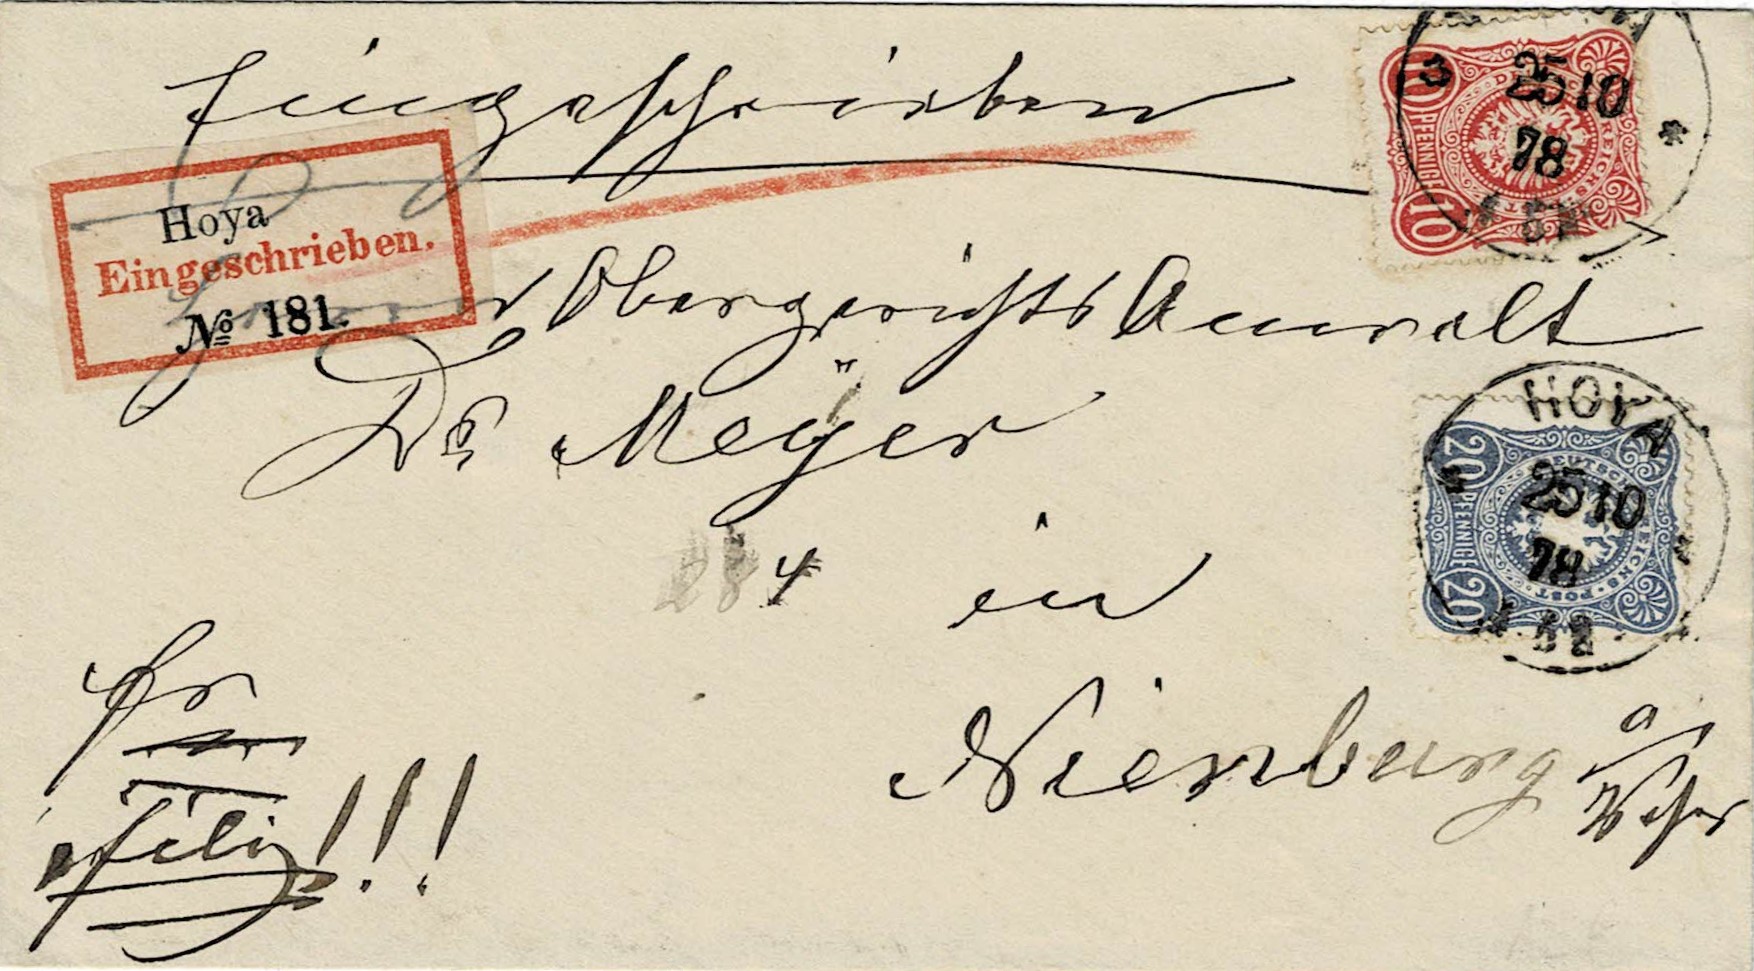 Eingeschrieben
Hoya
Eingeschrieben.
№ 181.
Herrn ObergerichtsAnwalt
Dr Meÿer
4
in
Nienburg a/Weser
fr
eilig!!!
10 PFENNIGE 10
3
25 10
78
*
20 PFENNIGE 20
DEUTSCHE REICHS-POST
HOYA
25 10
78